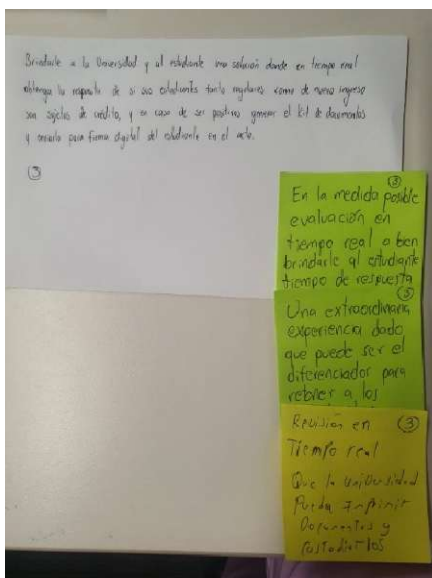 Brindarle a la Universidad y al estudiante una solución donde en tiempo real
obtenga la respuesta de si sus estudiantes tanto regulares como de nuevo ingreso
son sujetos de crédito, y en caso de ser positivo generar el kit de documentos
y enviarlo para firma digital del estudiante en el acto.
③
③
En la medida posible
evaluación en
tiempo real a bien
brindarle al estudiante
tiempo de respuesta
③
Una extraordinaria
experiencia dado
que puede ser el
diferenciador para
retener a los
Revisión en ③
Tiempo real
Que la universidad
Pueda Imprimir
Documentos y
custodiarlos